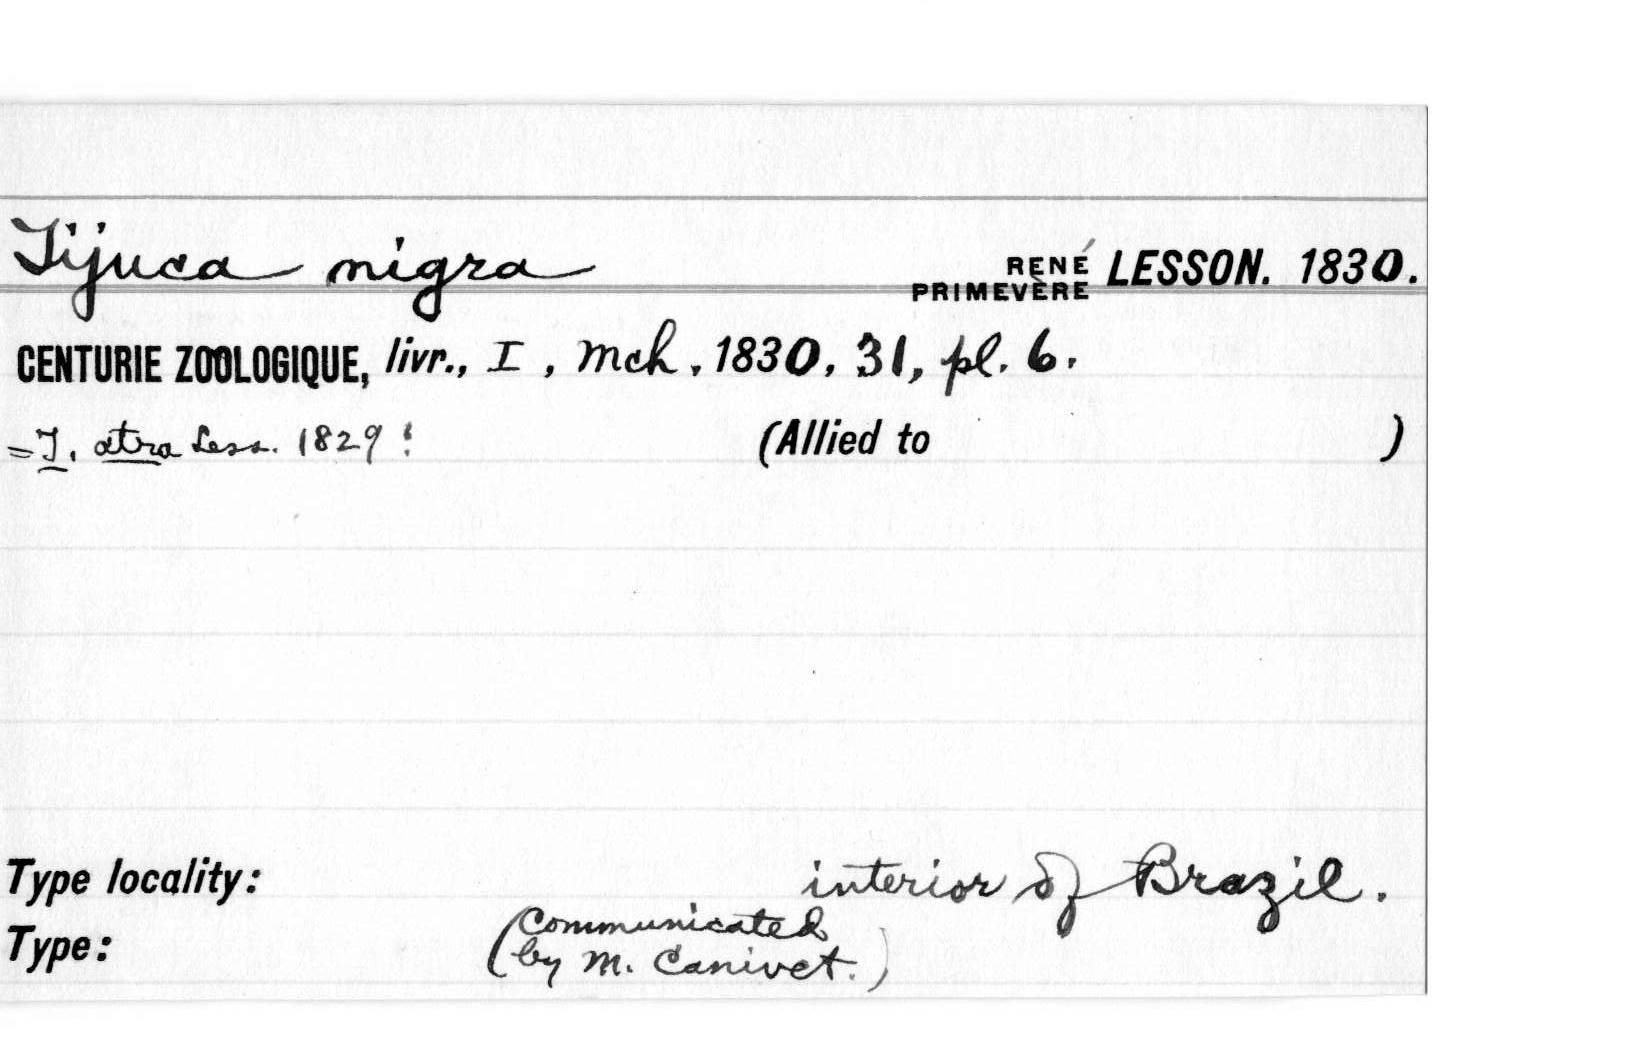 Tijuca nigra RENÉ PRIMEVÈRE LESSON. 1830.
CENTURIE ZOOLOGIQUE, livr., I, Mch, 1830, 31, pl. 6.
=T. atra Less. 1829! (Allied to )
Type locality: interior of Brazil.
Type: (Communicated
by M. Canivet.)